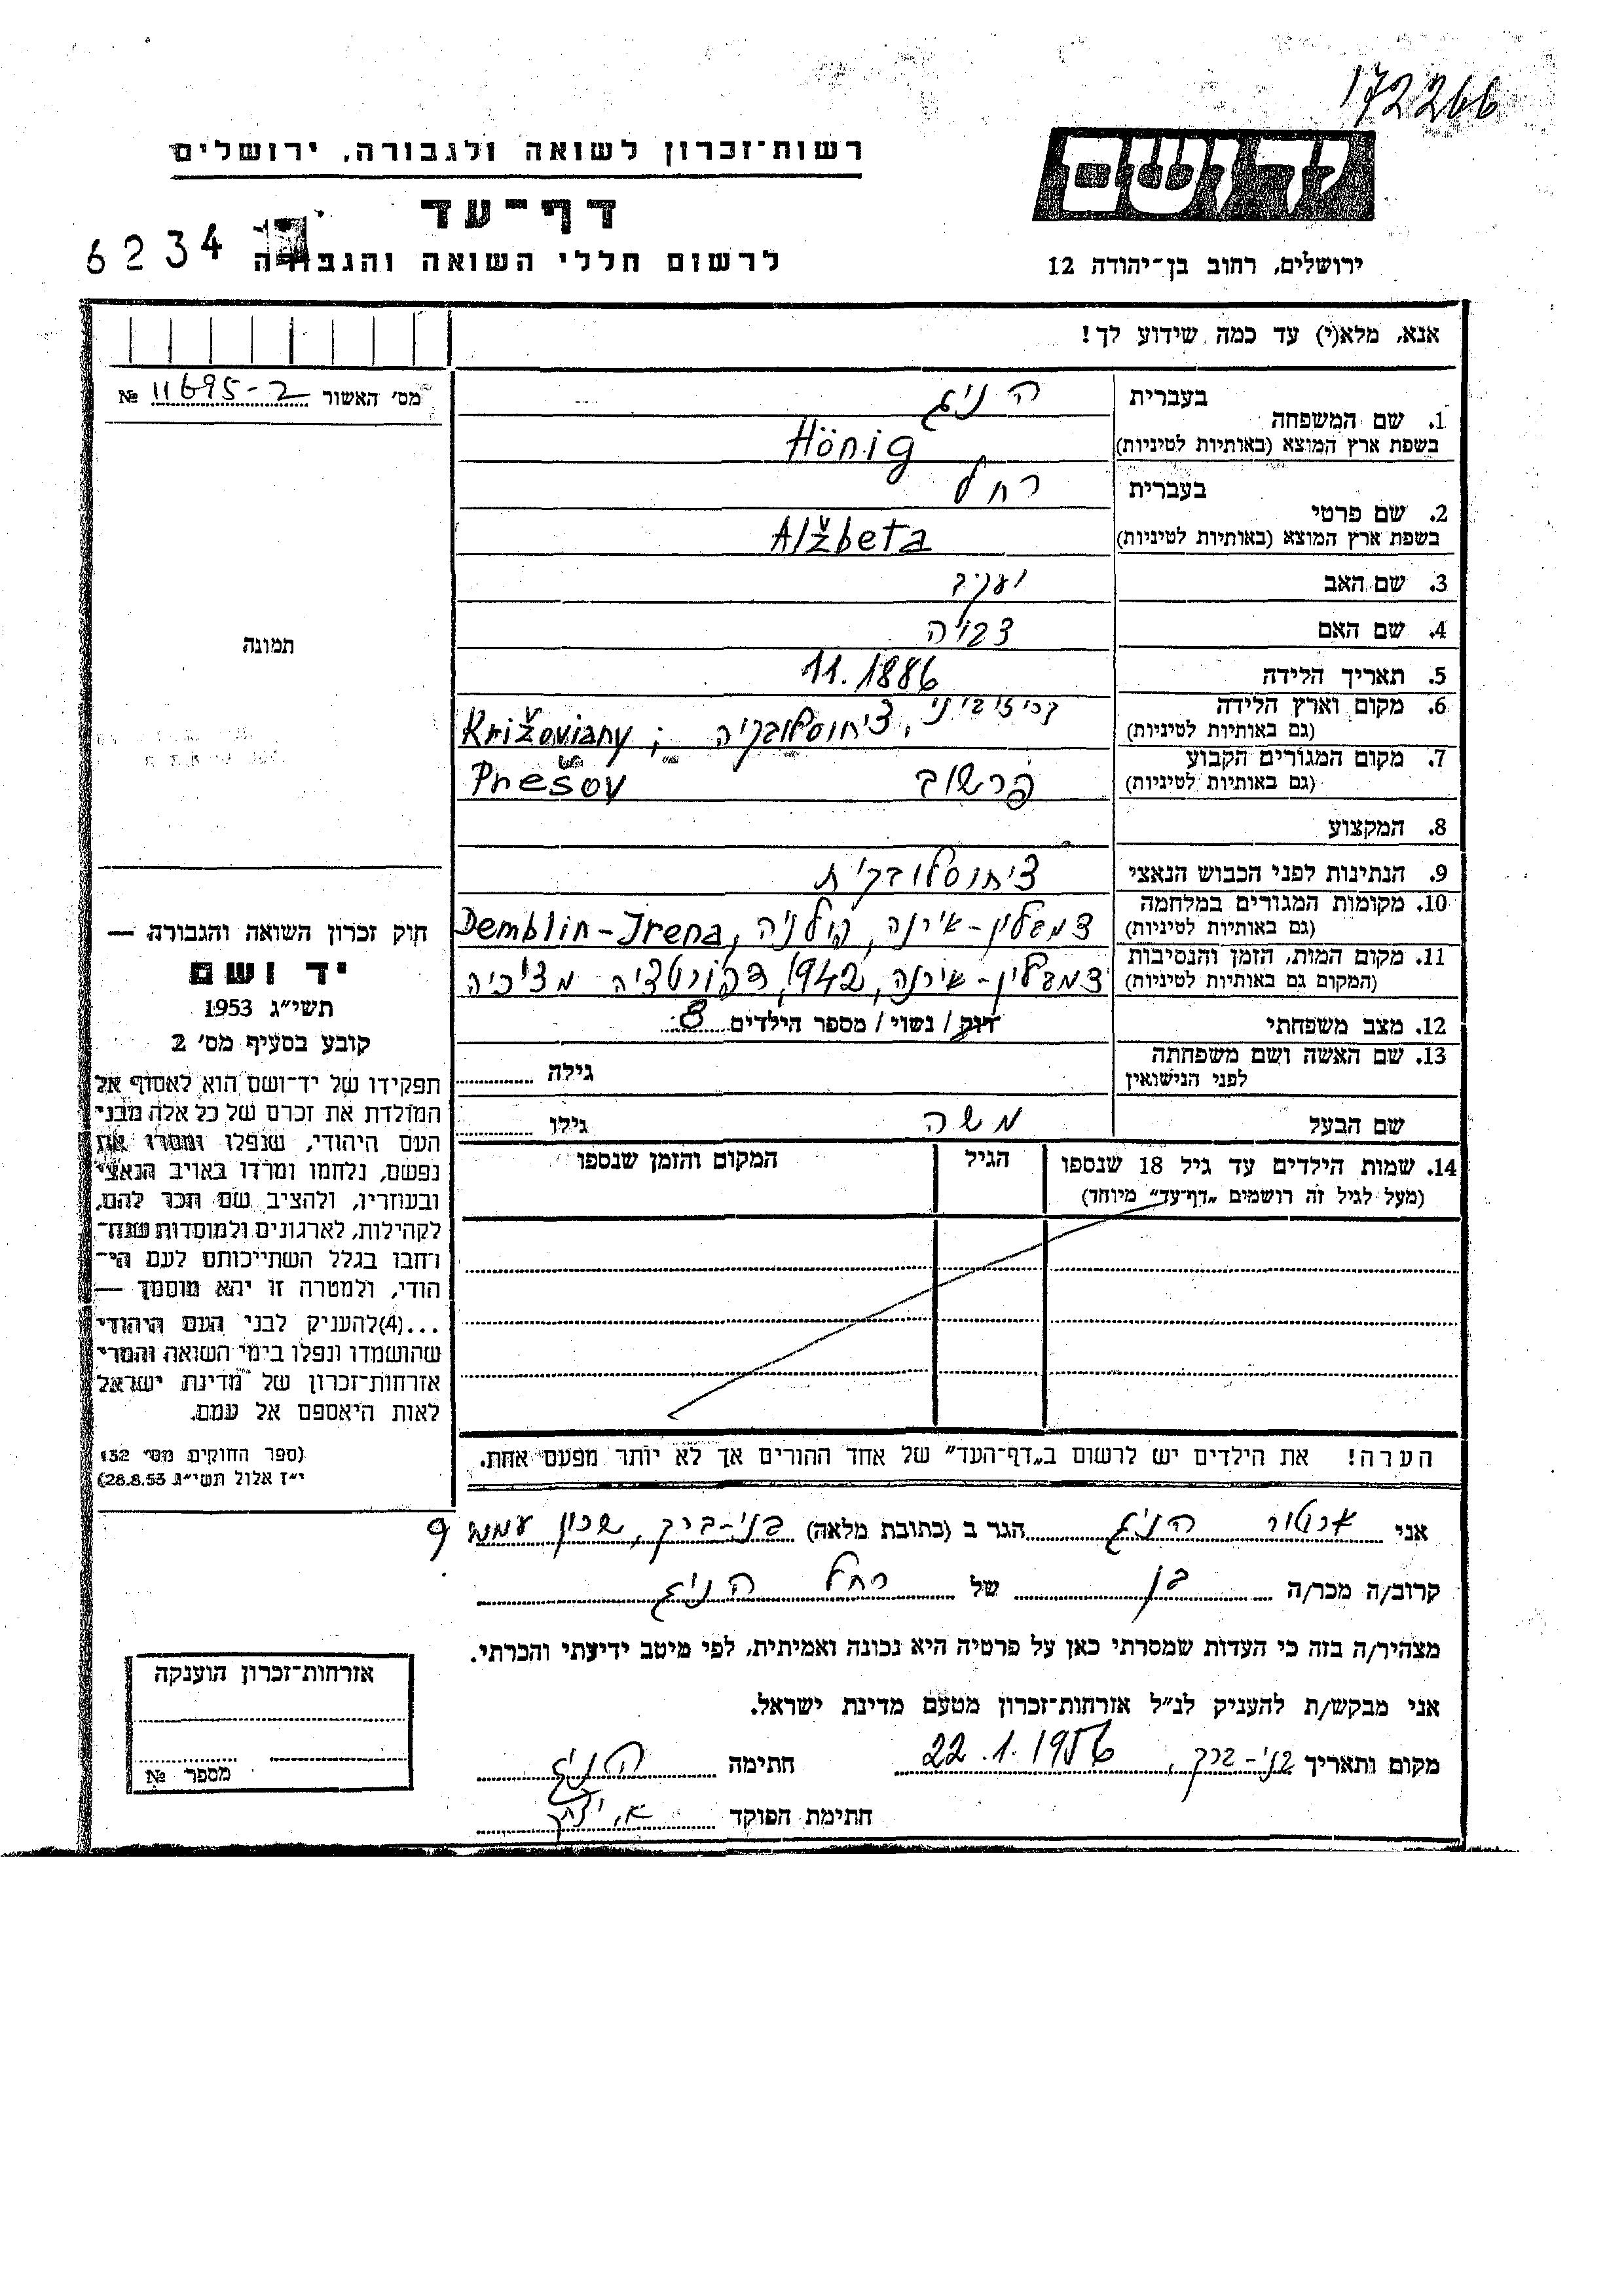 172266
רשות־זכרון לשואה ולגבורה, ירושלים
ד ף ־ ע ד
6234
לרשום חללי השואה והגבורה
ידושם
ירושלים, רחוב בן־יהודה 12
אנא, מלא(י) עד כמה שידוע לך!
מס׳ האשור 11695-2 №
1. שם המשפחה
בעברית הניג
בשפת ארץ המוצא (באותיות לטיניות) Hönig
2. שם פרטי
בעברית רחל
בשפת ארץ המוצא (באותיות לטיניות) Alžbeta
3. שם האב יעקב
4. שם האם צביה
5. תאריך הלידה 11.1886
6. מקום וארץ הלידה
(גם באותיות לטיניות) צ׳יחוסלובקיה ; Križoviany
7. מקום המגורים הקבוע
(גם באותיות לטיניות) פרשוב Prešov
8. המקצוע
9. הנתינות לפני הכבוש הנאצי ציחוסלובקית
10. מקומות המגורים במלחמה
(גם באותיות לטיניות) דמבלין-אירנה, פולניה, Demblin-Irena
11. מקום המות, הזמן והנסיבות
(המקום גם באותיות לטיניות) דמבלין-אירנה, 1942, דפורטציה מציכיה
12. מצב משפחתי רווק / נשוי / מספר הילדים 8
13. שם האשה ושם משפחתה
לפני הנישואין גילה
שם הבעל משה גילו
14. שמות הילדים עד גיל 18 שנספו הגיל המקום והזמן שנספו
(מעל לגיל זה רושמים „דף־עד״ מיוחד)
הערה! את הילדים יש לרשום ב„דף־העד״ של אחד ההורים אך לא יותר מפעם אחת.
תמונה
חוק זכרון השואה והגבורה —
יד ושם
תשי״ג 1953
קובע בסעיף מס׳ 2
תפקידו של יד־ושם הוא לאסוף אל
המולדת את זכרם של כל אלה מבני
העם היהודי, שנפלו ומסרו את
נפשם, נלחמו ומרדו באויב הנאצי
ובעוזריו, ולהציב שם וזכר להם,
לקהילות, לארגונים ולמוסדות שנח־
רבו בגלל השתייכותם לעם הי־
הודי, ולמטרה זו יהא מוסמך —
...(4)להעניק לבני העם היהודי
שהושמדו ונפלו בימי השואה והמרי
אזרחות־זכרון של מדינת ישראל
לאות היאספם אל עמם.
(ספר החוקים מס׳ 132
י״ז אלול תשי״ג 28.8.53)
אני ארטור הניג הגר ב (כתובת מלאה) בני-ברק, שכון עממי 9
קרוב/ה מכר/ה בן של רחל הניג
מצהיר/ה בזה כי העדות שמסרתי כאן על פרטיה היא נכונה ואמיתית, לפי מיטב ידיעתי והכרתי.
אני מבקש/ת להעניק לנ״ל אזרחות־זכרון מטעם מדינת ישראל.
מקום ותאריך בני-ברק, 22.1.1956 חתימה הניג
חתימת הפוקד
אזרחות־זכרון הוענקה
מספר №